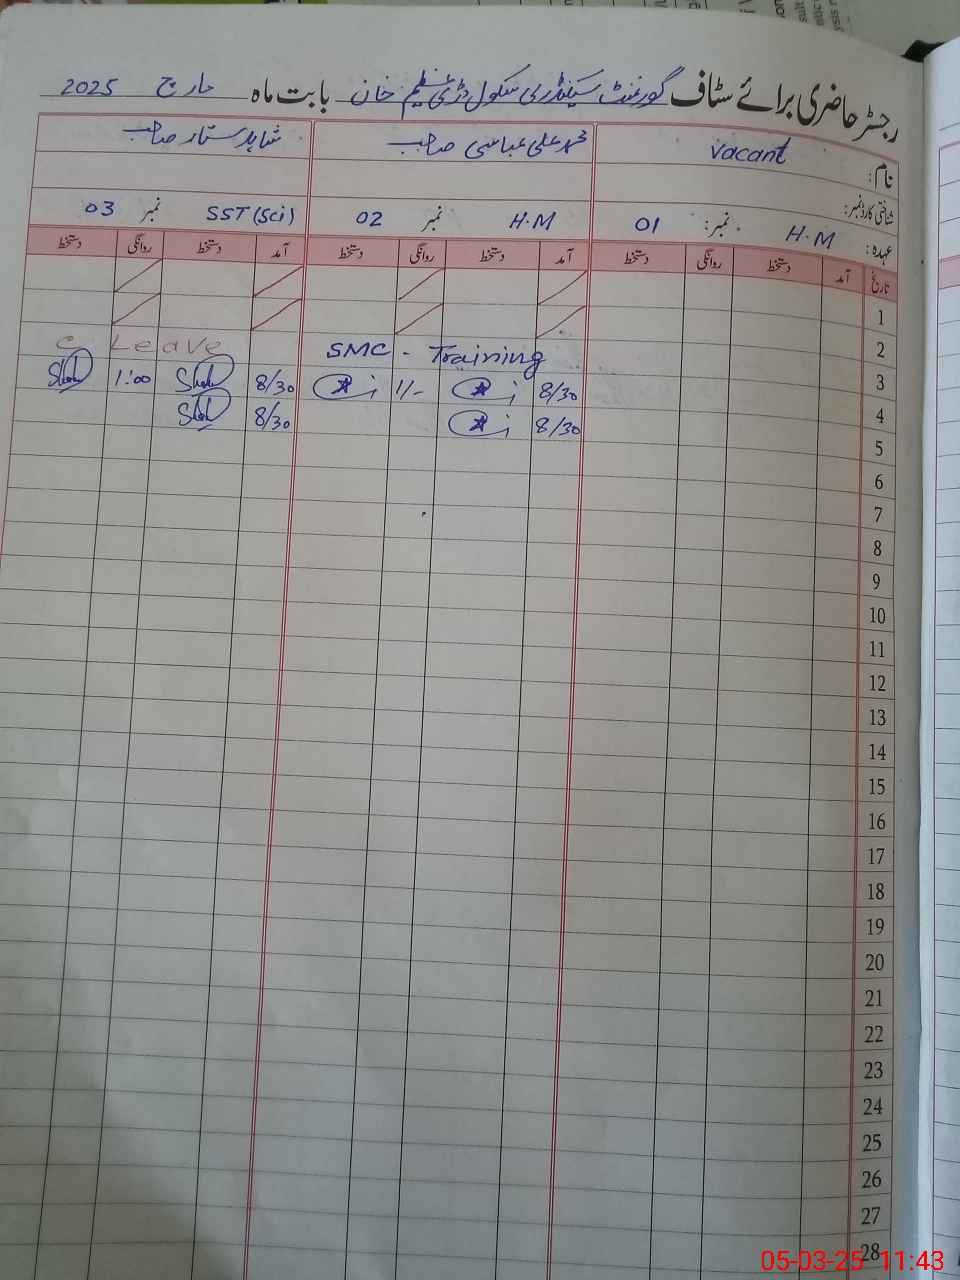 رجسٹر حاضری برائے سٹاف گورنمنٹ سیکنڈری سکول بابت ماہ مارچ 2025
نام: Vacant محمد علی عباسی صاحب شاہد ستار صاحب
شناختی کارڈ نمبر:
عہدہ: H.M نمبر: 01 H.M نمبر 02 SST (Sci) نمبر 03
تاریخ آمد دستخط روانگی دستخط آمد دستخط روانگی دستخط آمد دستخط روانگی دستخط
1
2
3 SMC - Training C Leave
4 8/30 1/- 8/30 1:00
5 8/30 8/30
6
7
8
9
10
11
12
13
14
15
16
17
18
19
20
21
22
23
24
25
26
27
28
05-03-25 11:43